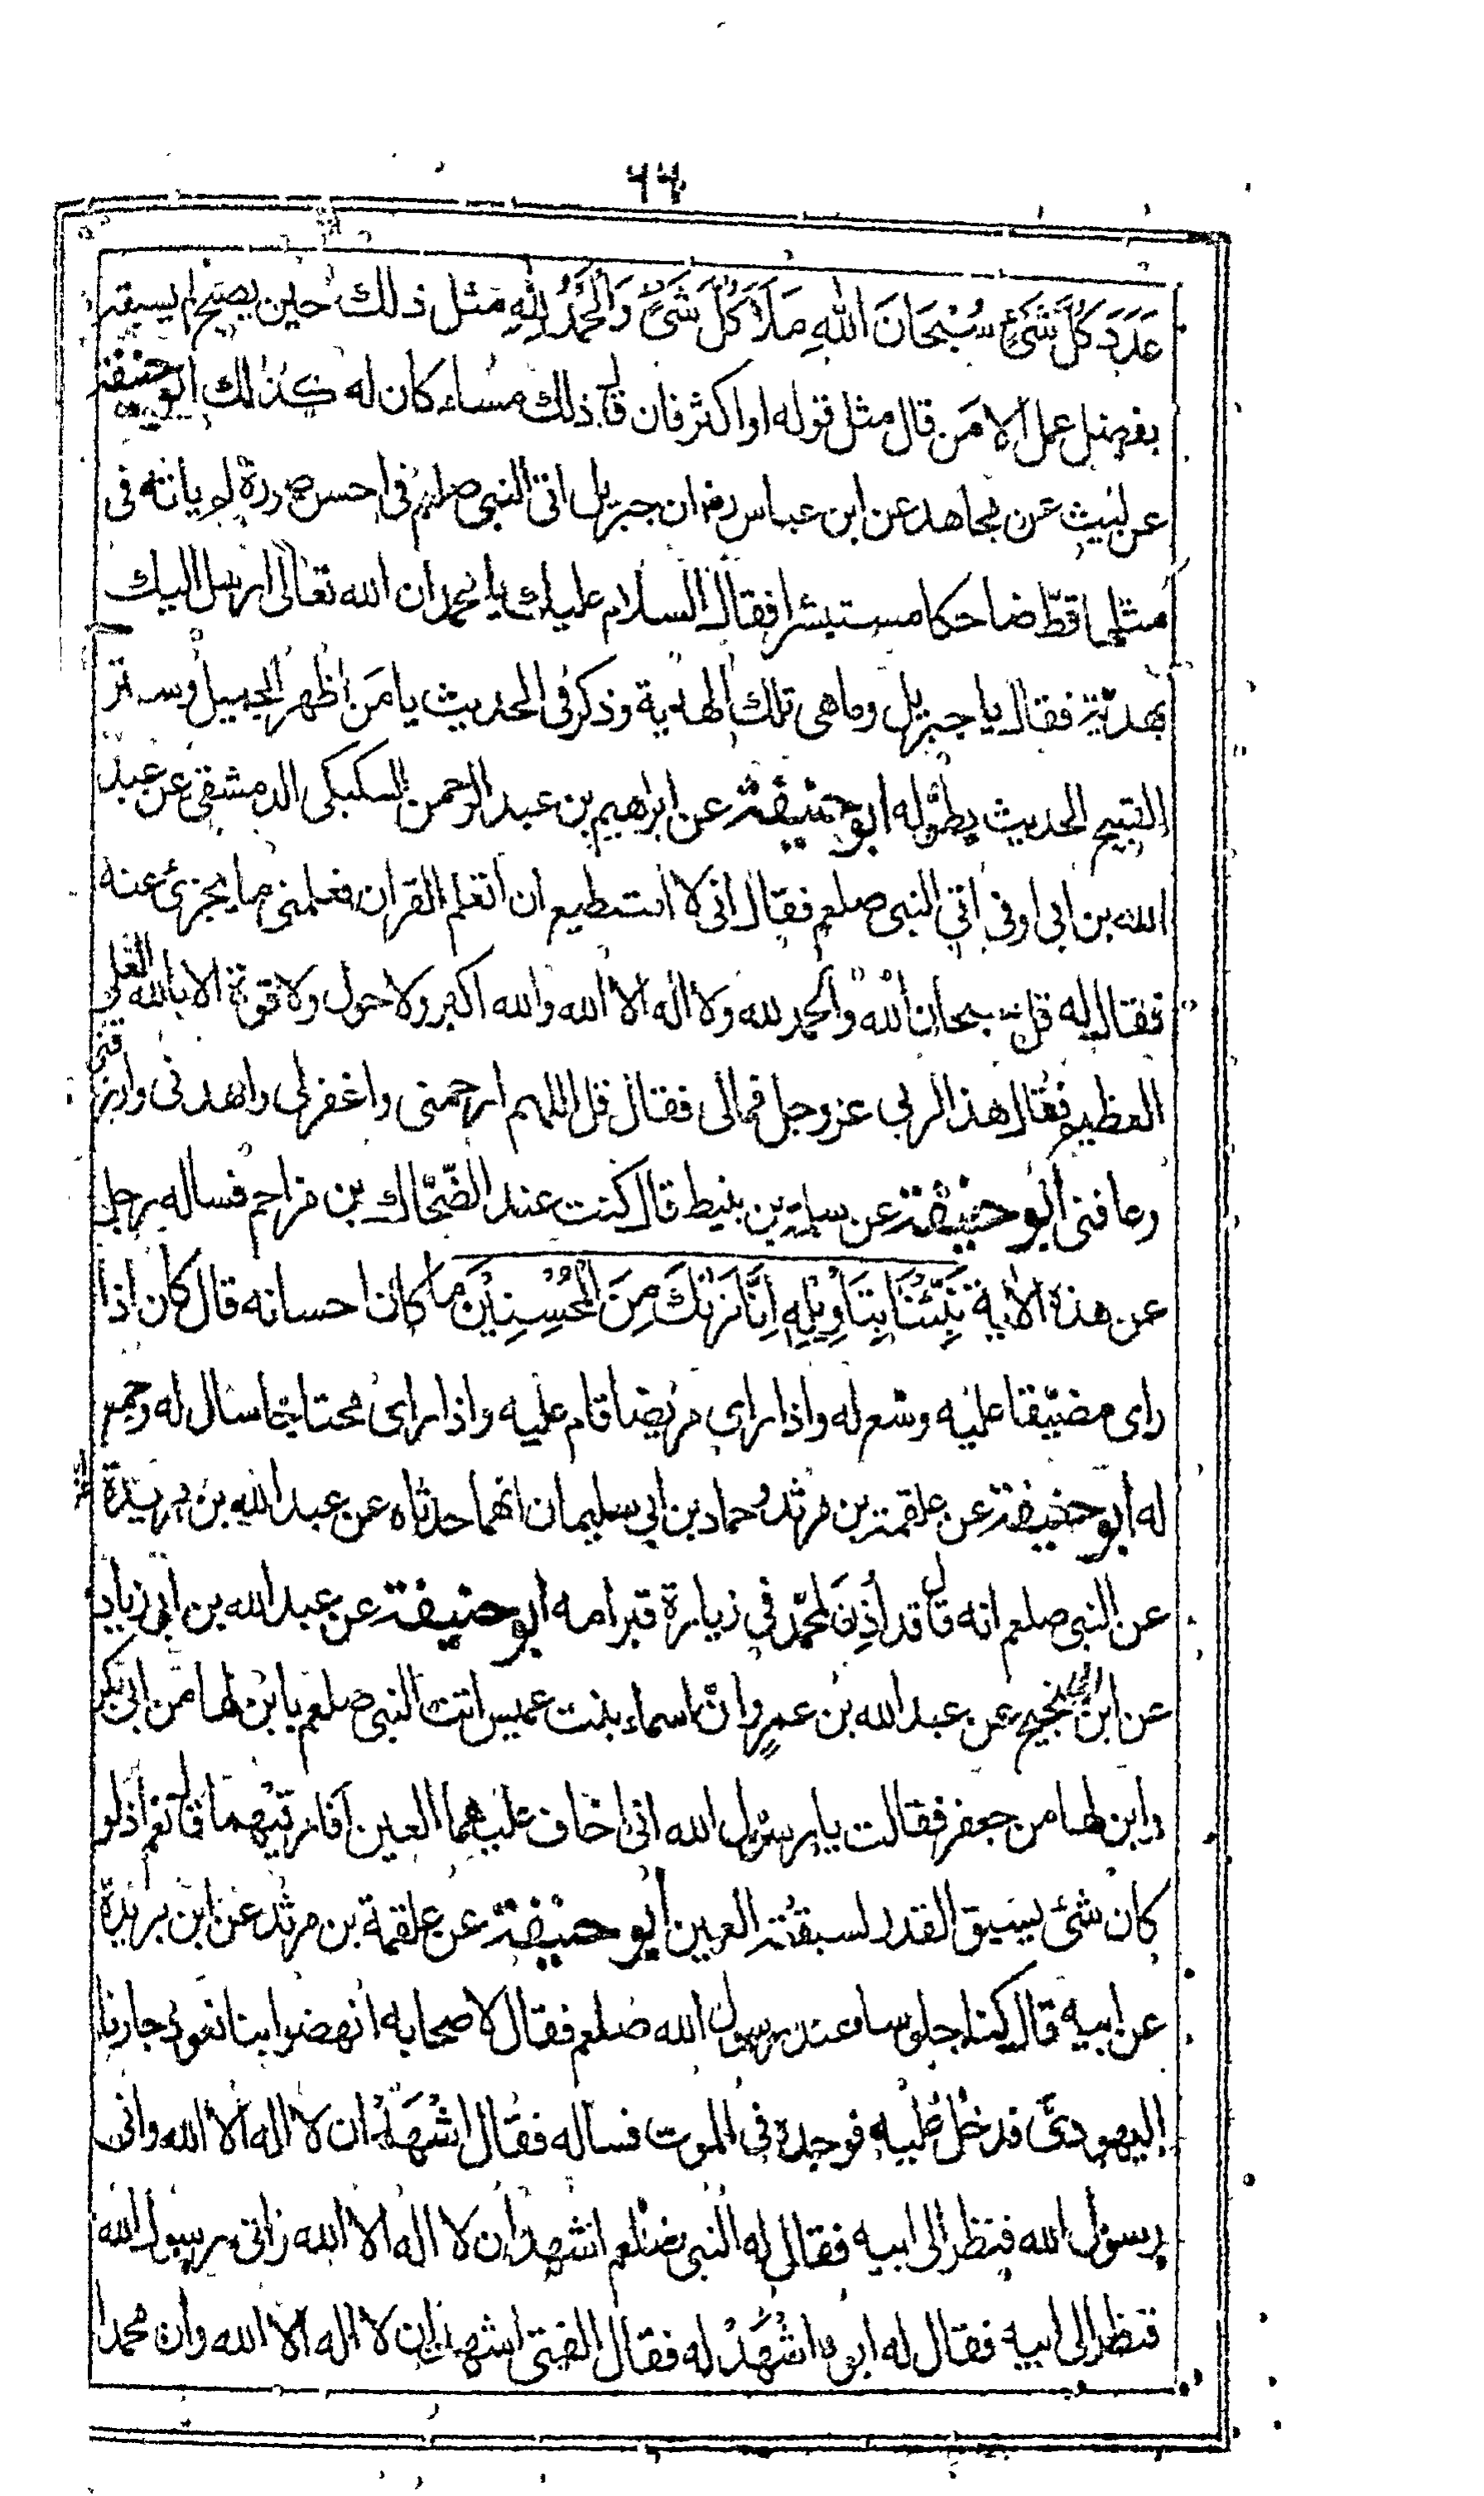 ٩٩
عَدَدَ كُلِّ شَئٍ سُبْحَانَ اللهِ مِلَأَ كُلِّ شَئٍ وَالْحَمْدُ لِلهِ مثل ذلك حين يصبح لم يسبقه
بفضل عمل الا من قال مثل قوله او اكثر فان قال ذلك مساء كان له كذلك ابو حنيفة
عن ليث عن مجاهد عن ابن عباس رض ان جبريل اتى النبى صلعم فى احسن صورة لم ياته فى
مثلها قطّ ضاحكا مستبشرا فقال السلام عليك يا محمد ان الله تعالى ارسل اليك
بهديّة فقال يا جبريل وما هى تلك الهدية وذكر فى الحديث يا من اظهر الجميل وستر
القبيح الحديث بطوله ابو حنيفة عن ابراهيم بن عبد الرحمن السكسكى الدمشقى عن عبد
الله بن ابى اوفى اتي النبى صلعم فقال انى لا استطيع ان اتعلم القران فعلمنى ما يجزئ عنه
فقال له قل سبحان الله والحمد لله ولا اله الا الله والله اكبر ولا حول ولا قوة الا بالله العلى
العظيم فقال هذا لربى عز وجل فمالى فقال قل اللهم ارحمنى واغفرلى واهدنى وارزقنى
وعافنى ابو حنيفة عن سلمة بن بنيط قال كنت عند الضّحّاك بن مزاحم فساله رجل
عن هذه الاية نَبِّئْنَا بِتَأوِيلِهِ اِنَّا نَرٰىكَ مِنَ الْمُحْسِنِيْنَ ما كان احسانه قال كان اذا
راى مضيّقا عليه وسّع له واذا راى مريضا قام عليه واذا راى محتاجا سال له وجمع
له ابو حنيفة عن علقمة بن مرثد وحماد بن ابي سليمان انهما حدثاه عن عبد الله بن بريدة
عن النبى صلعم انه قال قد أُذِنَ لمحمّد في زيارة قبر امه ابو حنيفة عن عبد الله بن ابى زياد
عن ابن ابى نجيح عن عبد الله بن عمرٍو ان اسماء بنت عميس اتت النبى صلعم يا بن لها من ابى بكر
وابن لها من جعفر فقالت يا رسول الله انى اخاف عليهما العين أفارقيهما قال نعم اذ لو
كان شئ يسبق القدر لسبقته العين ابو حنيفة عن علقمة بن مرثد عن ابن بريدة
عن ابيه قال كنا جلوسا عند رسول الله صلعم فقال لاصحابه انهضوا بنا نعود جارنا
اليهودىّ فدخل عليه فوجده فى الموت فساله فقال اشْهَدْ ان لا اله الا الله وانى
رسول الله فنظر الى ابيه فقال له النبى صلعم اشهد ان لا اله الا الله وانى رسول الله
فنظر الى ابيه فقال له ابوه اشْهَدْ له فقال الفتى اشهد ان لا اله الا الله وان محمدا